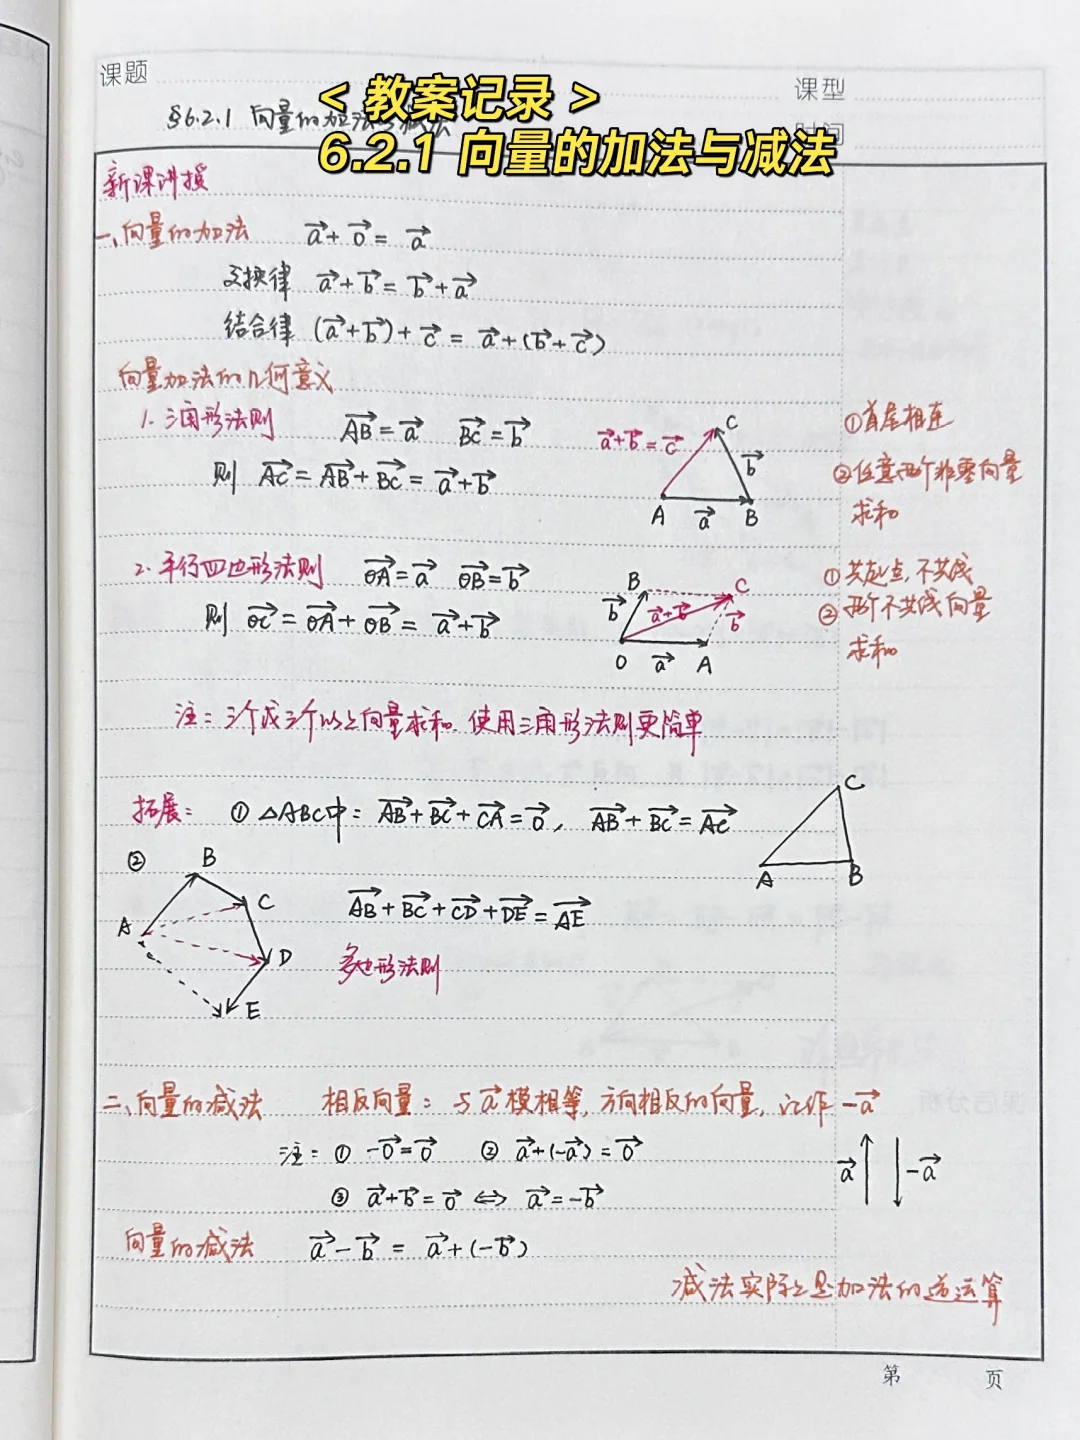 课题
课型
< 教案记录 >
§6.2.1 向量的加法与减法
时间
6.2.1 向量的加法与减法
新课讲授
一、向量的加法 a⃗+0⃗=a⃗
交换律 a⃗+b⃗=b⃗+a⃗
结合律 (a⃗+b⃗)+c⃗=a⃗+(b⃗+c⃗)
向量加法的几何意义
1. 三角形法则 AB⃗=a⃗ BC⃗=b⃗
则 AC⃗=AB⃗+BC⃗=a⃗+b⃗
a⃗+b⃗=c⃗
C
b⃗
A a⃗ B
①首尾相连
②任意两个非零向量
求和
2. 平行四边形法则 OA⃗=a⃗ OB⃗=b⃗
则 OC⃗=OA⃗+OB⃗=a⃗+b⃗
B C
b⃗ a⃗+b⃗ b⃗
O a⃗ A
①共起点,不共线
②两个不共线向量
求和
注：三个或三个以上向量求和,使用三角形法则更简单
拓展： ①△ABC中：AB⃗+BC⃗+CA⃗=0⃗, AB⃗+BC⃗=AC⃗
C
A B
②
B
C
A
D
E
AB⃗+BC⃗+CD⃗+DE⃗=AE⃗
多边形法则
二、向量的减法 相反向量：与a⃗模相等,方向相反的向量,记作 -a⃗
注：① -0⃗=0⃗ ② a⃗+(-a⃗)=0⃗
③ a⃗+b⃗=0⃗ ⇔ a⃗=-b⃗
a⃗ -a⃗
向量的减法 a⃗-b⃗=a⃗+(-b⃗)
减法实际上是加法的逆运算
第 页